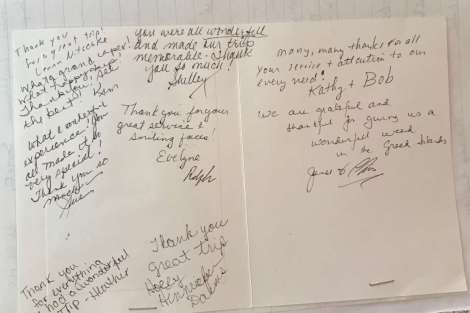 Thank you
for a great trip.
What a grand caper!
What happy trip.
Thank you. Get
the best!
What a wonderful
experience. You
all made it so
very special!
Thank you so
much!
Thank you
for everything
I had a wonderful
trip - Heather
you were all wonderful
and made our trip
memorable - Thank
you so much!
Shelley
Thank you for your
great service &
smiling faces!
Evelyne
Ralph
Thank you
Great trip
Dallas
many, many thanks for all
your service + attention to our
every need!
Kathy + Bob
We are grateful and
thankful for giving us a
wonderful week
in the Greek Islands